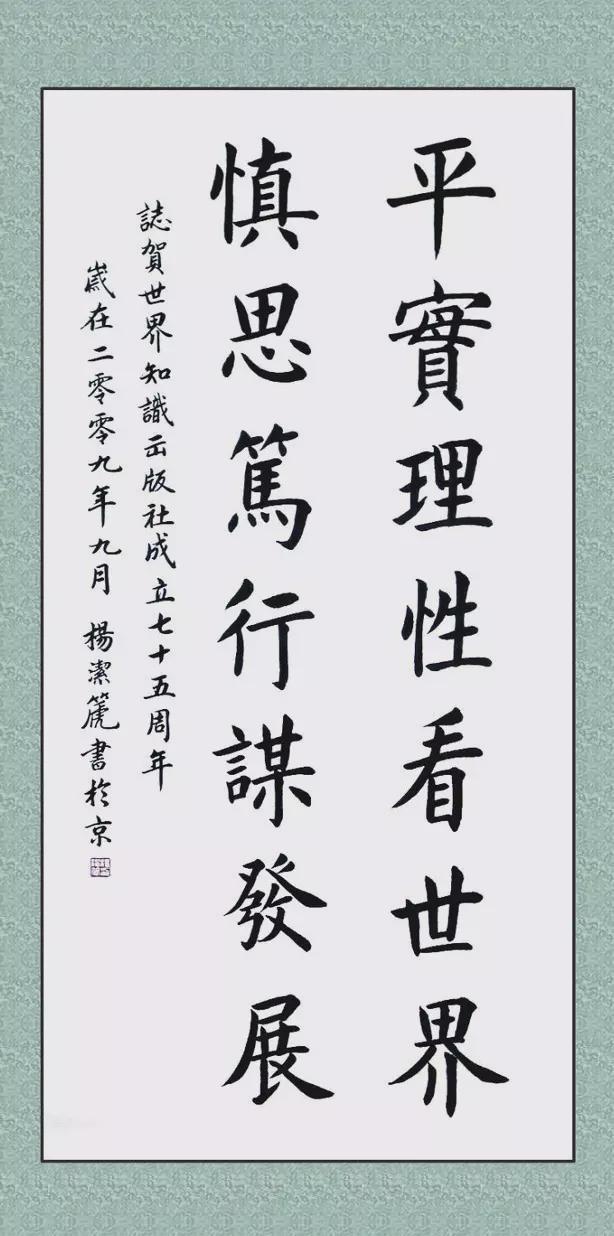 平實理性看世界
慎思篤行謀發展
誌賀世界知識出版社成立七十五周年
歲在二零零九年九月 楊潔篪書於京